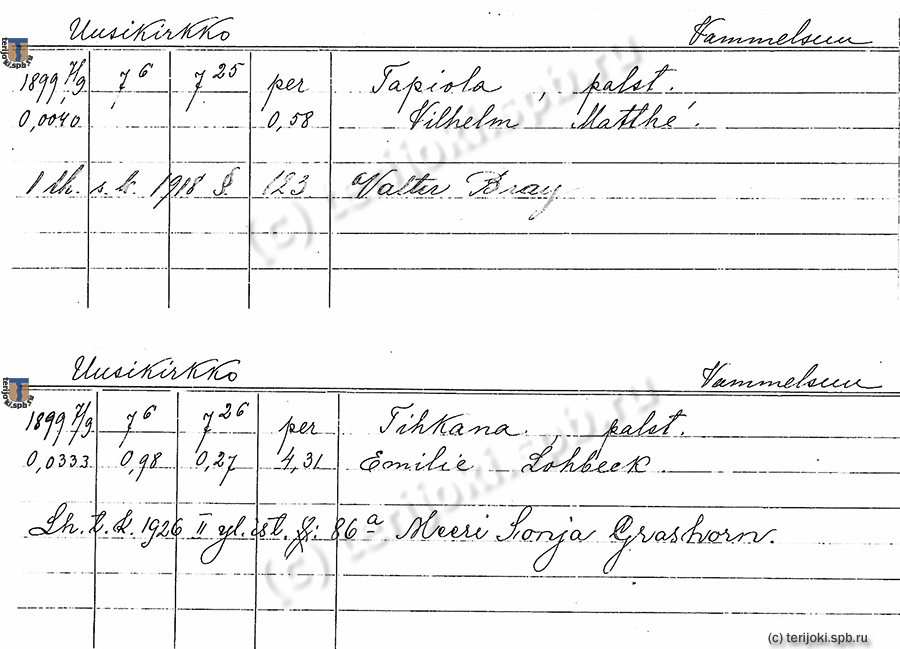 Uusikirkko Vammelsuu
1899 7/9 7 6 7 25 per Tapiola, palst.
0,0040 0,58 Vilhelm Matthé.
1 lh. s.k. 1918 §. 123 Valter Bray
Uusikirkko Vammelsuu
1899 7/9 7 6 7 26 per Tihkana, palst.
0,0333 0,98 0,27 4,31 Emilie Lohbeck.
Lh. t. k. 1926 II yl. ist. §: 86 a Meeri Sonja Grashorn.
(c) terijoki.spb.ru
(c) terijoki.spb.ru
(c) terijoki.spb.ru
terijoki.spb.ru
terijoki.spb.ru